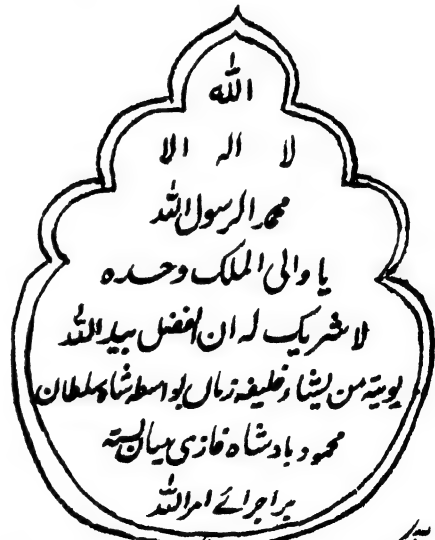 الله
لا اله الا
محمد الرسول الله
یا والی الملک وحده
لا شریک له ان الفضل بید الله
یوتیه من یشاء خلیفه زماں بواسطه شاه سلطان
محمود بادشاه غازی میاں بسته
براجرائے امر الله